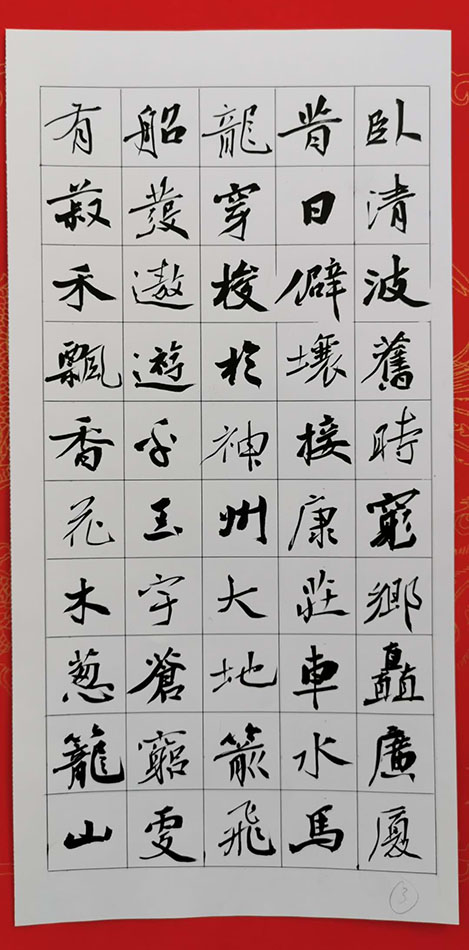 臥清波舊時窮鄉矗廣廈
昔日僻壤接康莊車水馬
龍穿梭於神州大地箭飛
船發遨遊乎玉宇蒼窮更
有菽禾飄香花木葱籠山
③